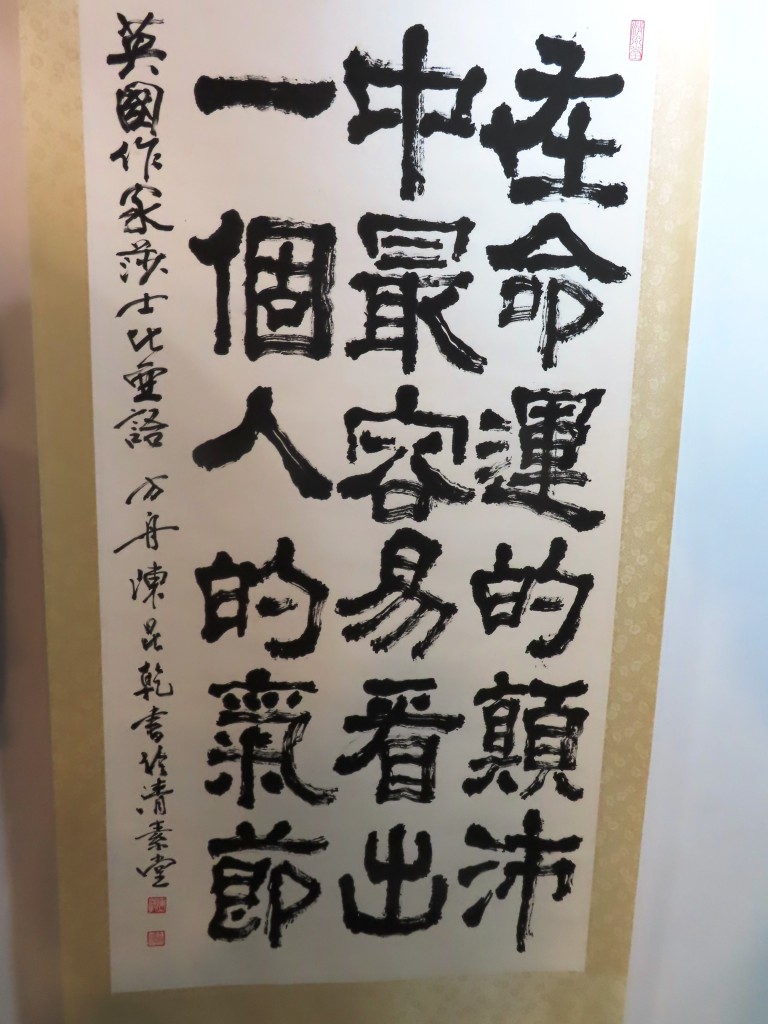 在命運的顛沛
中最容易看出
一個人的氣節
英國作家莎士比亞語 方舟陳昆乾書於清素堂